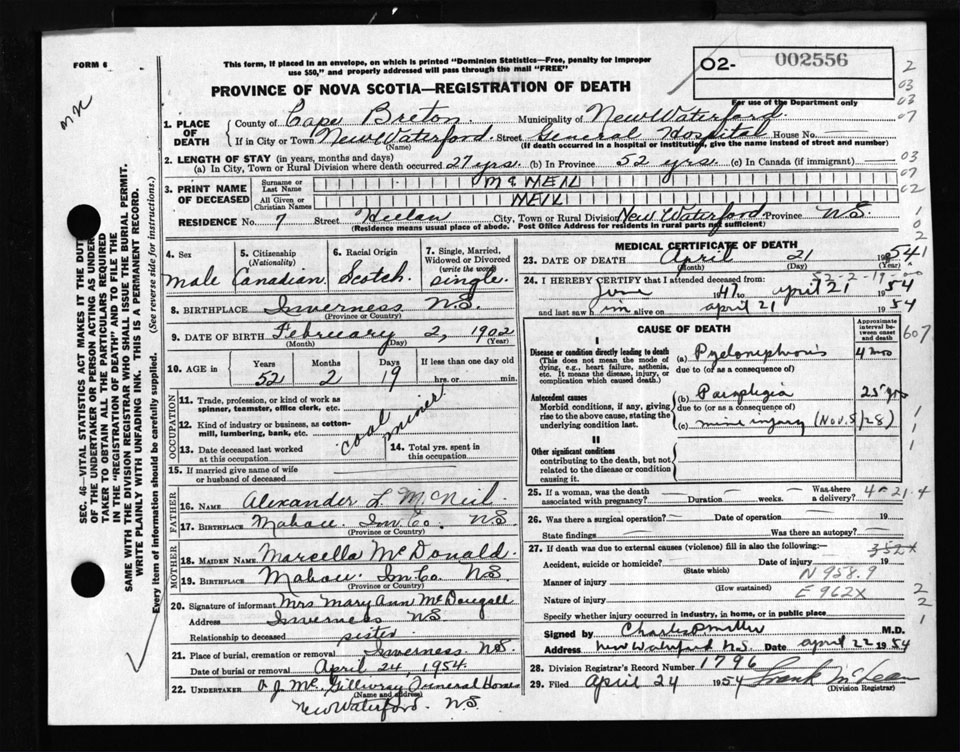 FORM 6
This form, if placed in an envelope, on which is printed "Dominion Statistics—Free, penalty for improper
use $50," and properly addressed will pass through the mail "FREE"
PROVINCE OF NOVA SCOTIA—REGISTRATION OF DEATH
O2- 002556
For use of the Department only
1. PLACE OF DEATH
County of Cape Breton Municipality of New Waterford
If in City or Town New Waterford. Street General Hospital House No.
(Name) (If death occurred in a hospital or institution, give the name instead of street and number)
2. LENGTH OF STAY (in years, months and days)
(a) In City, Town or Rural Division where death occurred 27 yrs. (b) In Province 52 yrs. (c) In Canada (if immigrant)
3. PRINT NAME OF DECEASED
Surname or Last Name McNEIL
All Given or Christian Names NEIL
RESIDENCE No. 7 Street City, Town or Rural Division New Waterford Province N.S.
(Residence means usual place of abode. Post Office Address for residents in rural parts not sufficient)
4. Sex
male
5. Citizenship (Nationality)
Canadian
6. Racial Origin
Scotch
7. Single, Married, Widowed or Divorced (write the word)
single
8. BIRTHPLACE Inverness N.S.
(Province or Country)
9. DATE OF BIRTH February 2, 1902
(Month) (Day) (Year)
10. AGE in Years Months Days If less than one day old
52 2 19 hrs. or min.
OCCUPATION
11. Trade, profession, or kind of work as
spinner, teamster, office clerk, etc.
12. Kind of industry or business, as cotton-
mill, lumbering, bank, etc.
coal miner
13. Date deceased last worked
at this occupation
14. Total yrs. spent in
this occupation
15. If married give name of wife
or husband of deceased
FATHER
16. NAME Alexander L. McNeil
17. BIRTHPLACE Mabou. Inv. Co. N.S
(Province or Country)
MOTHER
18. MAIDEN NAME Marcella McDonald.
19. BIRTHPLACE Mabou. Inv. Co. N.S.
(Province or Country)
20. Signature of informant Mrs Mary Ann McDougall
Address Inverness N.S
Relationship to deceased sister
21. Place of burial, cremation or removal Inverness. N.S.
Date of burial or removal April 24 1954.
22. UNDERTAKER McGillivray Funeral Homes
(Name and address)
New Waterford. N.S.
MEDICAL CERTIFICATE OF DEATH
23. DATE OF DEATH April 21 1954
(Month) (Day) (Year)
52-2-19-00
24. I HEREBY CERTIFY that I attended deceased from:
June 1947 to april 21 1954
and last saw him alive on april 21 1954
CAUSE OF DEATH
Approximate interval between onset and death
I
Disease or condition directly leading to death
(This does not mean the mode of
dying, e.g., heart failure, asthenia,
etc. It means the disease, injury, or
complication which caused death.)
(a) Pyelonephrosis 4 mos
due to (or as a consequence of)
Antecedent causes
Morbid conditions, if any, giving
rise to the above cause, stating the
underlying condition last.
(b) Paraplegia 25 yrs
due to (or as a consequence of)
(c) mine injury (Nov. 5/28)
II
Other significant conditions
contributing to the death, but not
related to the disease or condition
causing it.
607
25. If a woman, was the death
associated with pregnancy? Duration weeks. Was there
a delivery?
4-21-4
26. Was there a surgical operation? Date of operation 19
State findings Was there an autopsy?
27. If death was due to external causes (violence) fill in also the following:—
352X
Accident, suicide or homicide? Date of injury 19
(State which)
N 958.9
Manner of injury
(How sustained)
E 962X
Nature of injury
Specify whether injury occurred in industry, in home, or in public place
Signed by M.D.
Address New Waterford N.S. Date april 22 1954
28. Division Registrar's Record Number 1796
29. Filed April 24 1954 Frank McLean
(Division Registrar)
SEC. 46—VITAL STATISTICS ACT MAKES IT THE DUTY
OF THE UNDERTAKER OR PERSON ACTING AS UNDER-
TAKER TO OBTAIN ALL THE PARTICULARS REQUIRED
IN THE "REGISTRATION OF DEATH" AND TO FILE THE
SAME WITH THE DIVISION REGISTRAR WHO SHALL ISSUE THE BURIAL PERMIT.
WRITE PLAINLY WITH UNFADING INK. THIS IS A PERMANENT RECORD.
Every item of information should be carefully supplied. (See reverse side for instructions.)